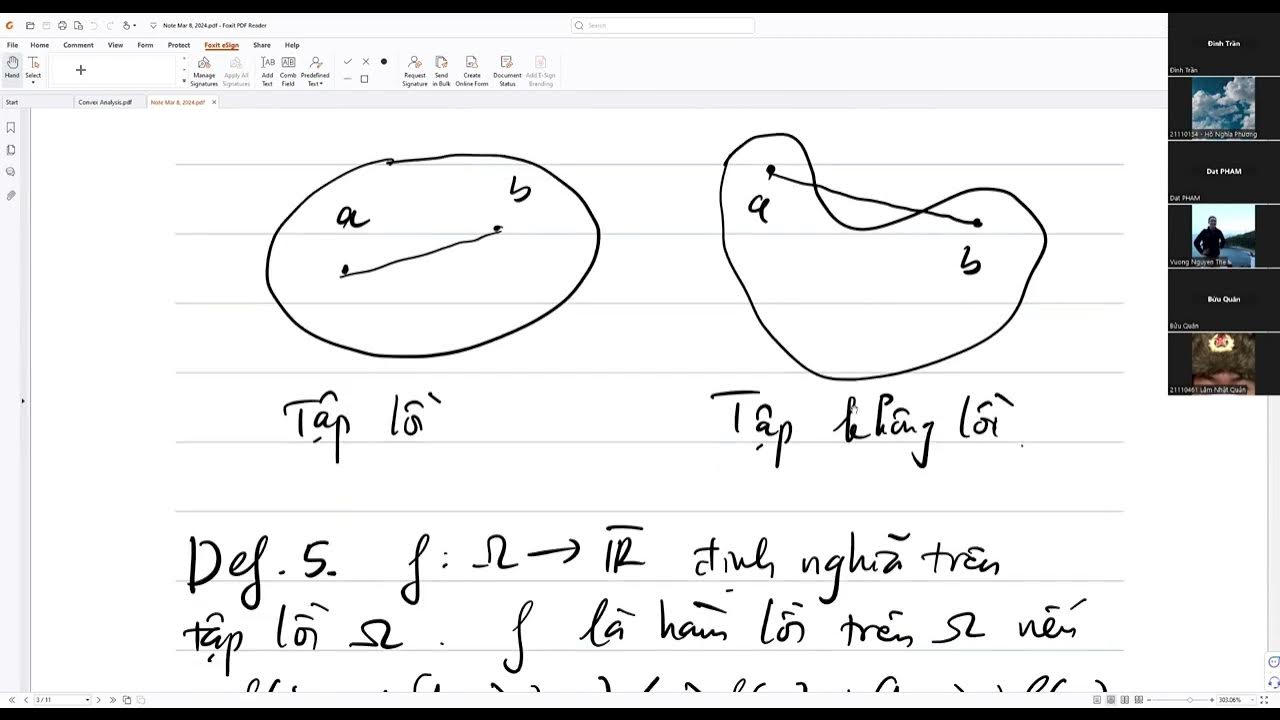 Note Mar 8, 2024.pdf - Foxit PDF Reader
Search
File Home Comment View Form Protect Foxit eSign Share Help
Hand Select Manage Signatures Apply All Signatures Add Text Comb Field Predefined Text Request Signature Send in Bulk Create Online Form Document Status Add E-Sign Branding
Start Convex Analysis.pdf Note Mar 8, 2024.pdf
Đình Trần
Đình Trần
21110154 - Hồ Nghĩa Phương
Dat PHAM
Dat PHAM
Vuong Nguyen The
Bửu Quân
Bửu Quân
21110461 Lâm Nhật Quân
a b
a b
Tập lồi
Tập không lồi.
Def. 5. f: Ω → R̅ định nghĩa trên
tập lồi Ω. f là hàm lồi trên Ω nếu
3 / 11
303.06%